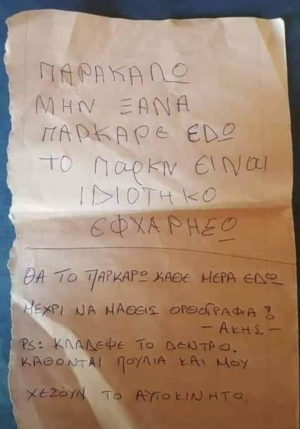 ΠΑΡΑΚΑΛΩ
ΜΗΝ ΞΑΝΑ
ΠΑΡΚΑΡΕ ΕΔΩ
ΤΟ ΠΑΡΚΝ ΕΙΝΑΙ
ΙΔΙΟΤΗΚΟ
ΕΦΧΑΡΗΣΩ
ΘΑ ΤΟ ΠΑΡΚΑΡΩ ΚΑΘΕ ΜΕΡΑ ΕΔΩ
ΜΕΧΡΙ ΝΑ ΜΑΘΕΙΣ ΟΡΘΟΓΡΑΦΙΑ!
- ΑΚΗΣ -
PS: ΚΛΑΔΕΨΕ ΤΟ ΔΕΝΤΡΟ.
ΚΑΘΟΝΤΑΙ ΠΟΥΛΙΑ ΚΑΙ ΜΟΥ
ΧΕΖΟΥΝ ΤΟ ΑΥΤΟΚΙΝΗΤΟ.